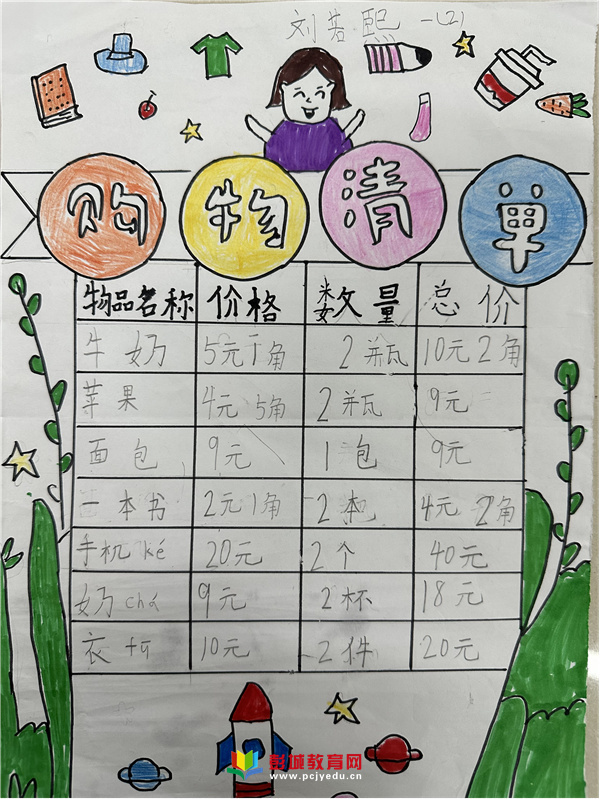 刘若熙 一(2)
购物清单
物品名称 价格 数量 总价
牛奶 5元1角 2瓶 10元2角
苹果 4元5角 2瓶 9元
面包 9元 1包 9元
一本书 2元1角 2本 4元2角
手机ké 20元 2个 40元
奶chá 9元 2杯 18元
衣fú 10元 2件 20元
彭城教育网
www.pcjyedu.cn